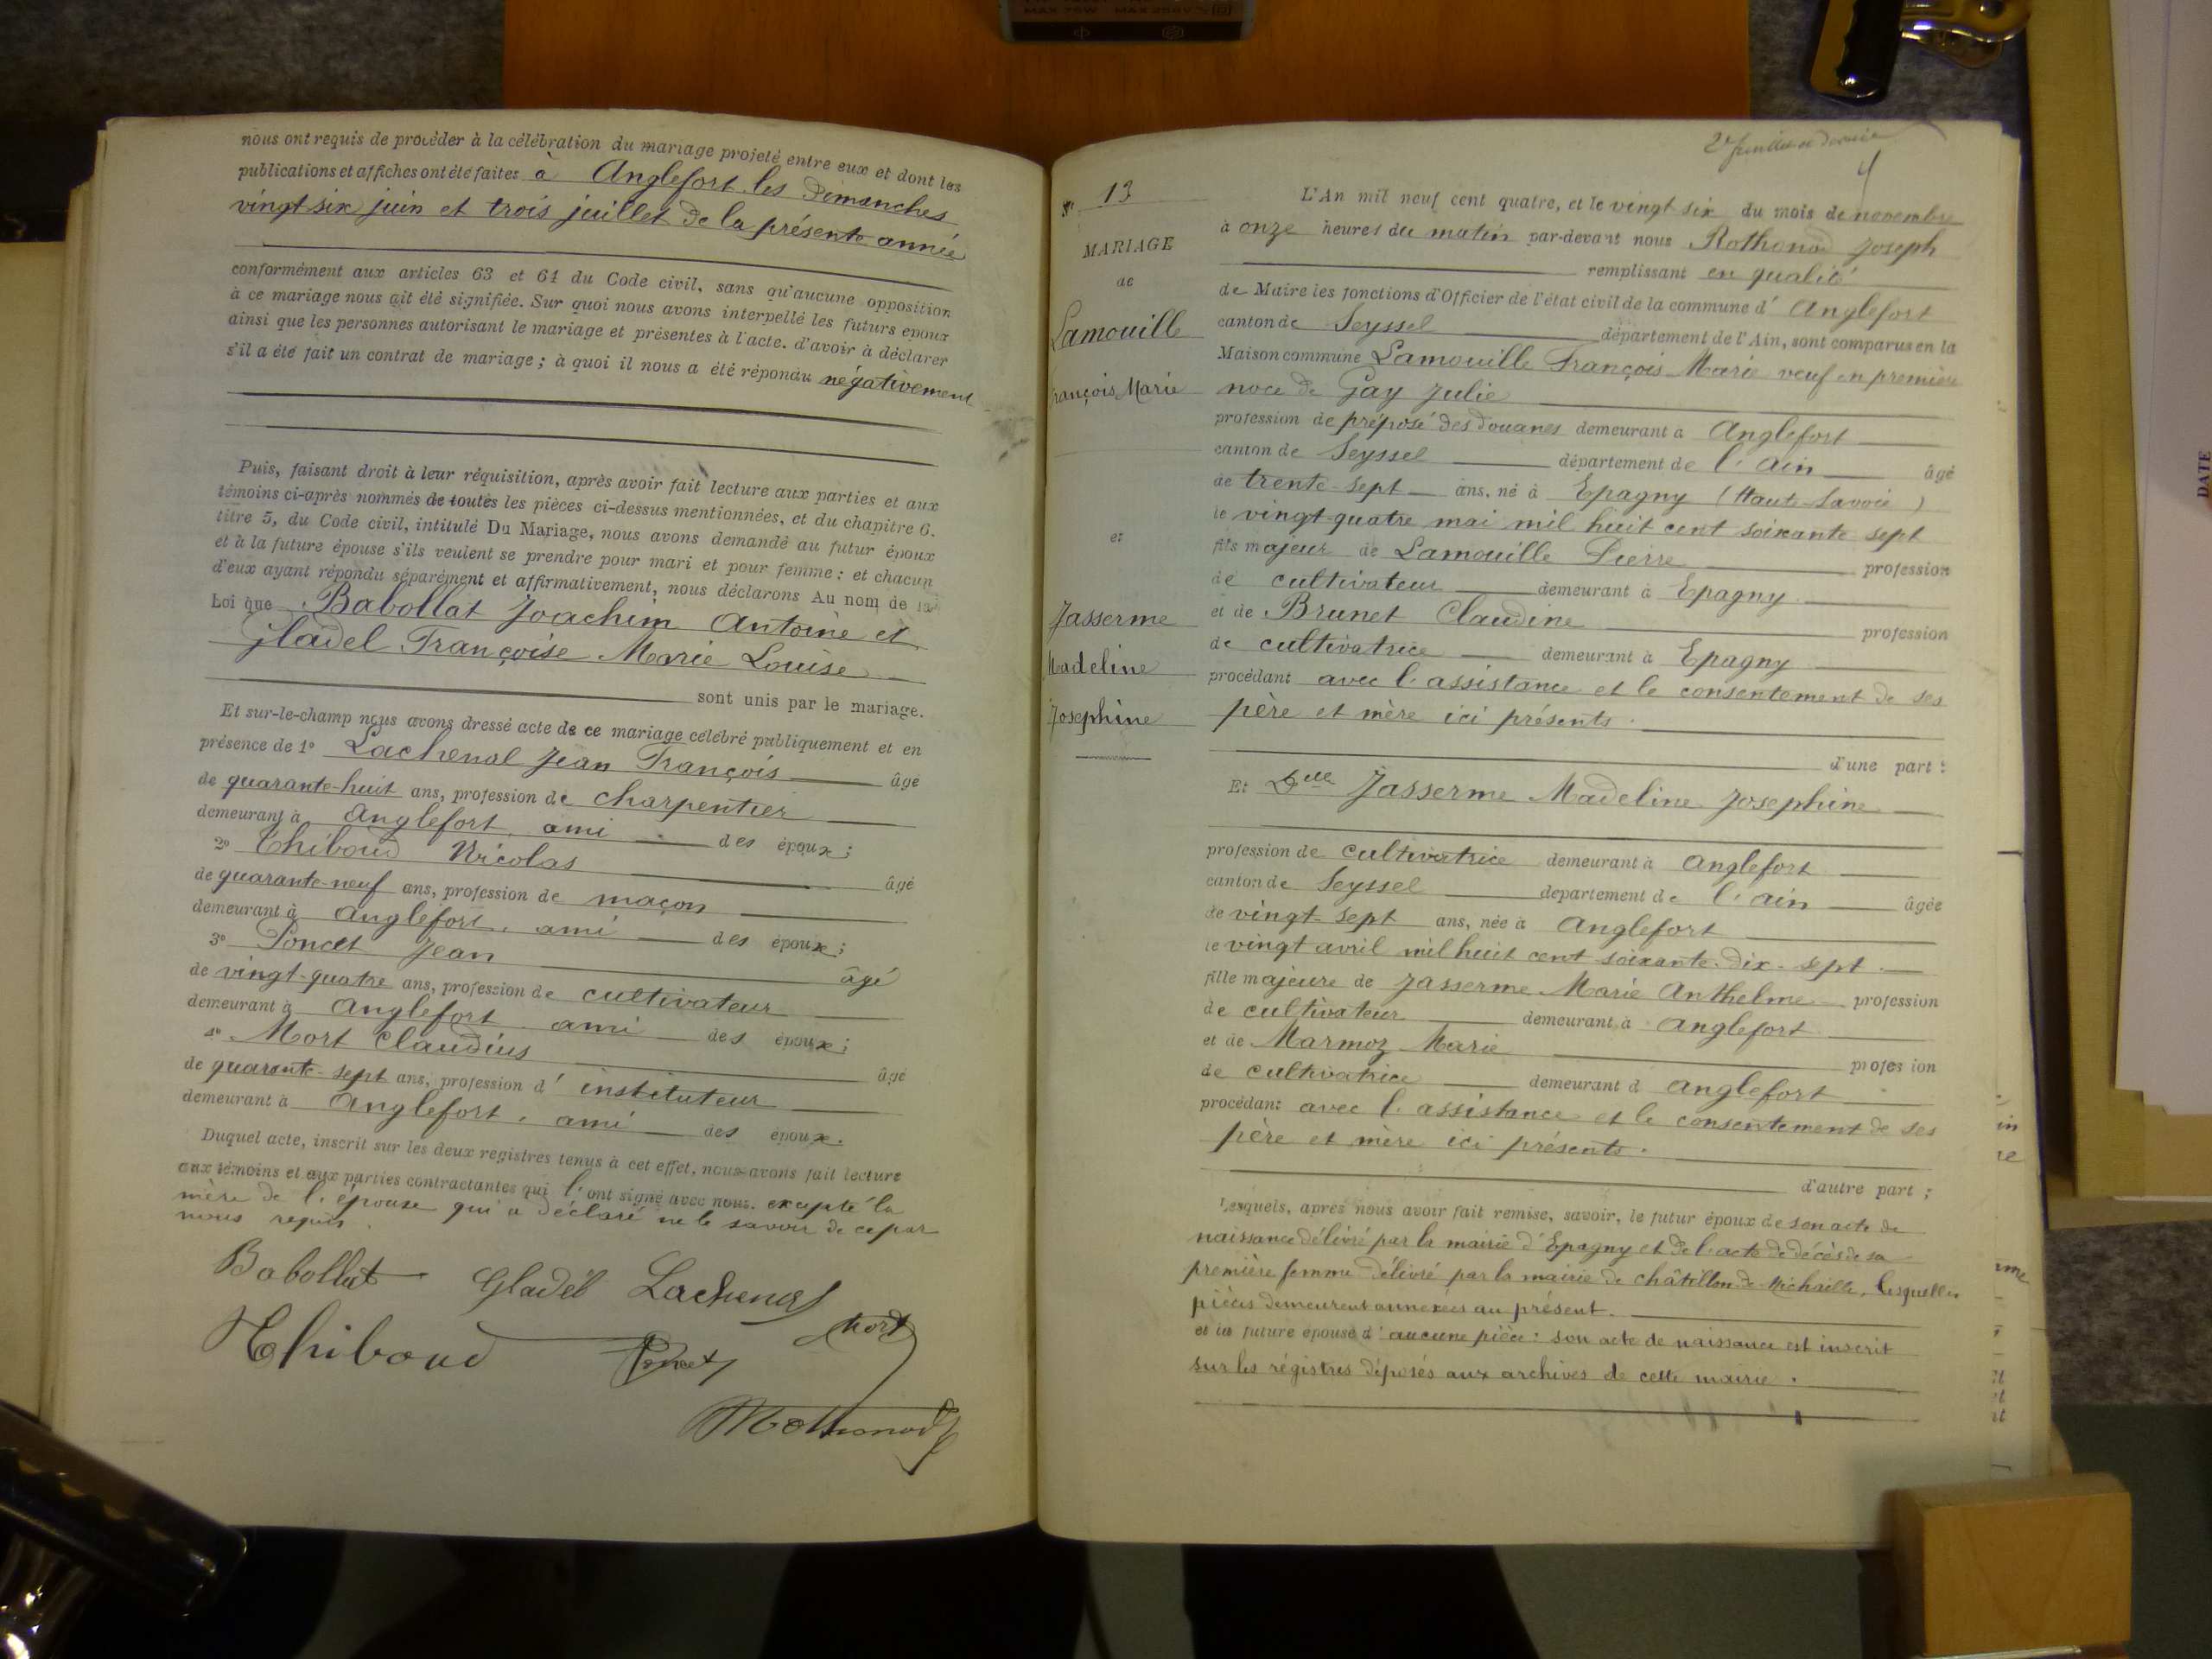 nous ont requis de procéder à la célébration du mariage projeté entre eux et dont les
publications et affiches ont été faites à Anglefort les dimanches
vingt-six juin et trois juillet de la présente année
conformément aux articles 63 et 64 du Code civil, sans qu'aucune opposition
à ce mariage nous ait été signifiée. Sur quoi nous avons interpellé les futurs époux
ainsi que les personnes autorisant le mariage et présentes à l'acte. d'avoir à déclarer
s'il a été fait un contrat de mariage ; à quoi il nous a été répondu négativement
Puis, faisant droit à leur réquisition, après avoir fait lecture aux parties et aux
témoins ci-après nommés de toutes les pièces ci-dessus mentionnées, et du chapitre 6.
titre 5, du Code civil, intitulé Du Mariage, nous avons demandé au futur époux
et à la future épouse s'ils veulent se prendre pour mari et pour femme ; et chacun
d'eux ayant répondu séparément et affirmativement, nous déclarons Au nom de la
Loi que Babollat Joachim Antoine et
Gladel Françoise Marie Louise
sont unis par le mariage.
Et sur-le-champ nous avons dressé acte de ce mariage célébré publiquement et en
présence de 1° Lachenal Jean François âgé
de quarante-huit ans, profession de charpentier
demeurant à Anglefort, ami des époux ;
2° Thiboud Nicolas âgé
de quarante-neuf ans, profession de maçon
demeurant à Anglefort, ami des époux ;
3° Poncet Jean âgé
de vingt-quatre ans, profession de cultivateur
demeurant à Anglefort ami des époux ;
4° Mort Claudius âgé
de quarante-sept ans, profession d' instituteur
demeurant à Anglefort, ami des époux.
Duquel acte, inscrit sur les deux registres tenus à cet effet, nous avons fait lecture
aux témoins et aux parties contractantes qui l'ont signé avec nous. excepté la
mère de l'épouse qui a déclaré ne le savoir de ce par
nous requis.
Babollat Gladel Lachenal
Thiboud Poncet Mort
Rothonod
13
MARIAGE
de
Lamouille
François Marie
et
Jasserme
Madeline
Josephine
L'An mil neuf cent quatre, et le vingt-six du mois de novembre
à onze heures du matin par-devant nous Rothonod Joseph
remplissant en qualité
de Maire les fonctions d'Officier de l'état civil de la commune d' Anglefort
canton de Seyssel département de l'Ain, sont comparus en la
Maison commune Lamouille François Marie veuf en première
noce de Gay Julie
profession de préposé des douanes demeurant à Anglefort
canton de Seyssel département de l'Ain âgé
de trente-sept ans, né à Epagny (Haute-Savoie)
le vingt-quatre mai mil huit cent soixante sept
fils majeur de Lamouille Pierre profession
de cultivateur demeurant à Epagny
et de Brunet Claudine profession
de cultivatrice demeurant à Epagny
procédant avec l'assistance et le consentement de ses
père et mère ici présents.
d'une part :
Et Dlle Jasserme Madeline Josephine
profession de cultivatrice demeurant à Anglefort
canton de Seyssel département de l'Ain âgée
de vingt-sept ans, née à Anglefort
le vingt avril mil huit cent soixante-dix-sept.
fille majeure de Jasserme Marie Anthelme profession
de cultivateur demeurant à Anglefort
et de Marmoz Marie profession
de cultivatrice demeurant à Anglefort
procédant avec l'assistance et le consentement de ses
père et mère ici présents.
d'autre part ;
Lesquels, après nous avoir fait remise, savoir, le futur époux de son acte de
naissance délivré par la mairie d'Epagny et de l'acte de décès de sa
première femme délivré par la mairie de Châtillon-de-Michaille, lesquelles
pièces demeurent annexées au présent.
et la future épouse d'aucune pièce : son acte de naissance est inscrit
sur les régistres déposés aux archives de cette mairie.
DATE